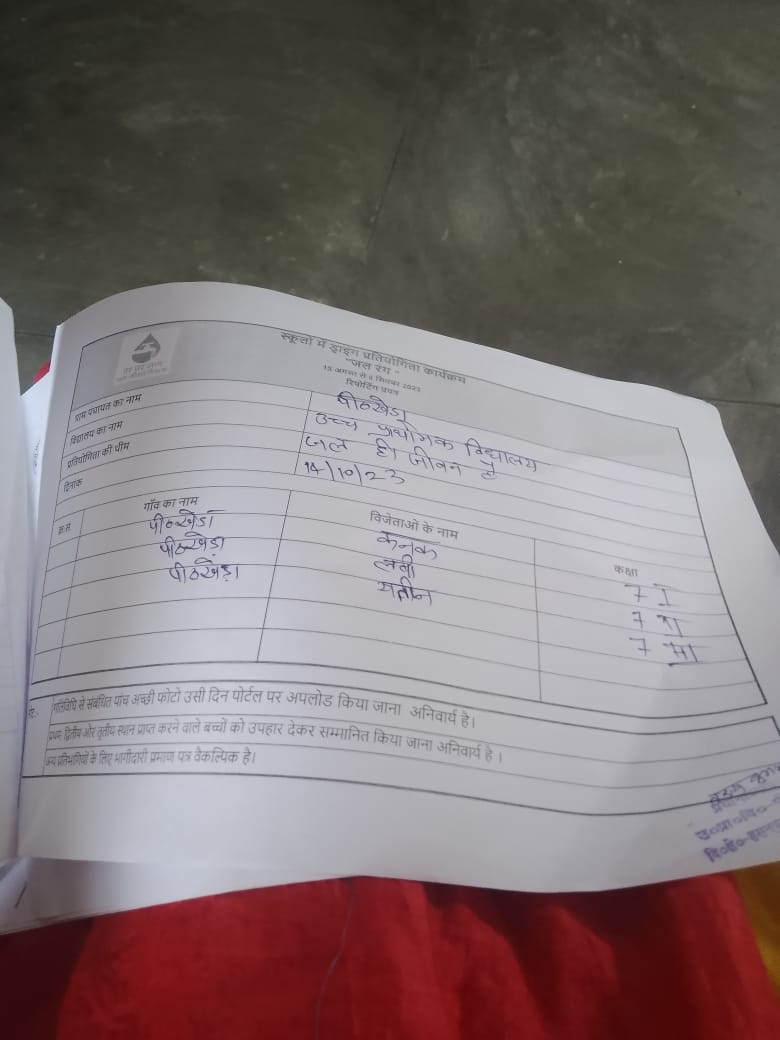 हर घर जल
जल जीवन मिशन
स्कूलों में ड्राइंग प्रतियोगिता कार्यक्रम
"जल रंग"
15 अगस्त से 8 सितम्बर 2023
रिपोर्टिंग प्रपत्र
ग्राम पंचायत का नाम पीठखेडा
विद्यालय का नाम उच्च प्राथमिक विद्यालय
प्रतियोगिता की थीम जल ही जीवन है
दिनांक 14/10/23
क्र.सं. गाँव का नाम विजेताओं के नाम कक्षा
पीठखेडा कनक 7 I
पीठखेडा लवी 7
पीठखेड़ा 7
गतिविधि से संबंधित पांच अच्छी फोटो उसी दिन पोर्टल पर अपलोड किया जाना अनिवार्य है।
प्रथम, द्वितीय और तृतीय स्थान प्राप्त करने वाले बच्चों को उपहार देकर सम्मानित किया जाना अनिवार्य है ।
अन्य प्रतिभागियों के लिए भागीदारी प्रमाण पत्र वैकल्पिक है।